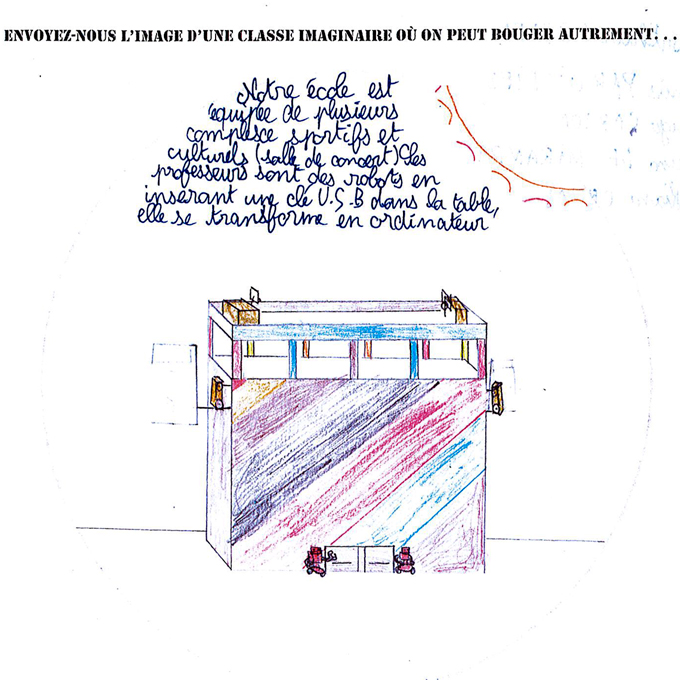 ENVOYEZ-NOUS L'IMAGE D'UNE CLASSE IMAGINAIRE OÙ ON PEUT BOUGER AUTREMENT...
Notre école est
équipée de plusieurs
complesce sportifs et
culturels (salle de concert) Les
professeurs sont des robots en
inserant une clé U.S.B dans la table,
elle se transforme en ordinateur